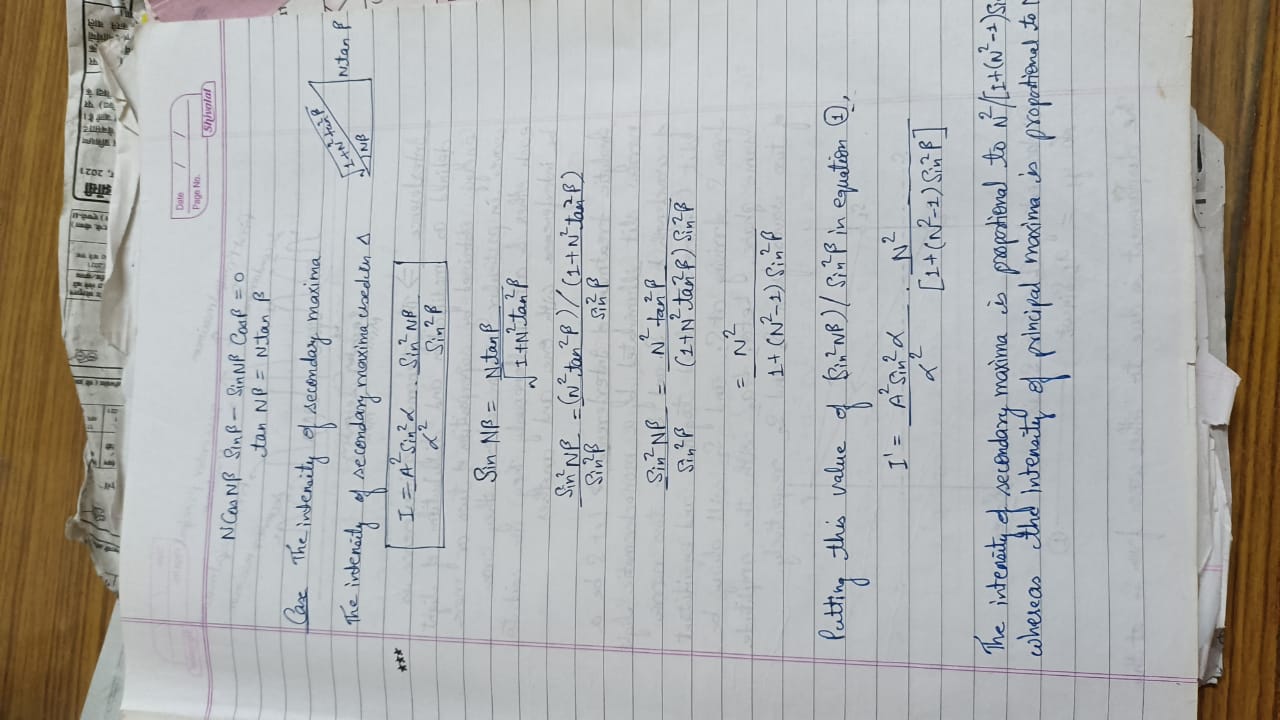 Date / /
Page No.
Shivalal
N Cos Nβ Sin β − Sin Nβ Cos β = 0
tan Nβ = N tan β
Case The intensity of secondary maxima
The intensity of secondary maxima under Δ
√1+N² tan² β
N tan β
Nβ
1
*** I = A² Sin² α / α² . Sin² Nβ / Sin² β
Sin Nβ = N tan β / √1+N² tan² β
Sin² Nβ / Sin² β = (N² tan² β) / (1+N² tan² β) / Sin² β
Sin² Nβ / Sin² β = N² tan² β / (1+N² tan² β) Sin² β
= N² / 1+(N²−1) Sin² β
Putting this value of Sin² Nβ / Sin² β in equation ①,
I' = A² Sin² α / α² . N² / [1+(N²−1) Sin² β]
The intensity of secondary maxima is propotional to N²/[1+(N²−1) Si
whereas the intensity of principal maxima is propotional to